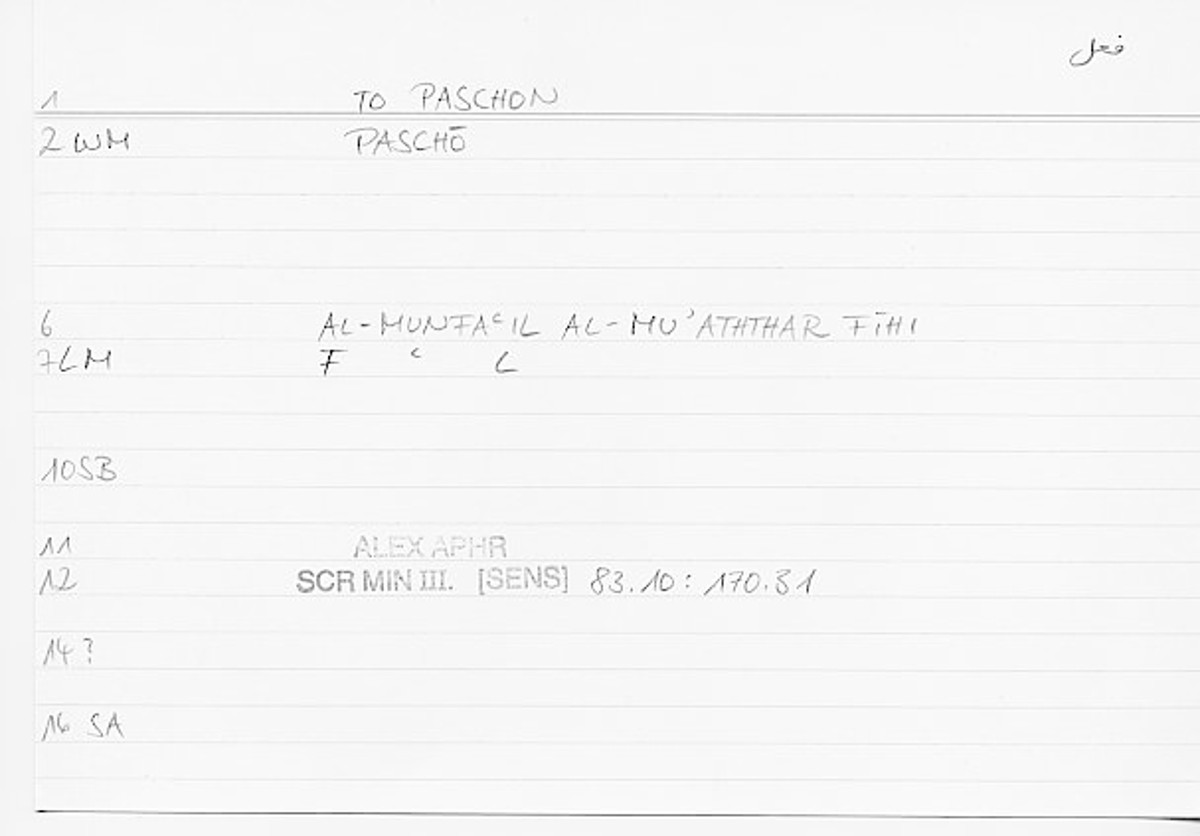 فعل
1 TO PASCHON
2 WM PASCHŌ
6 AL-MUNFAʿIL AL-MUʾATHTHAR FĪHI
7LM F ʿ L
10SB
11 ALEX APHR
12 SCR MIN III. [SENS] 83.10: 170.31
14?
16 SA